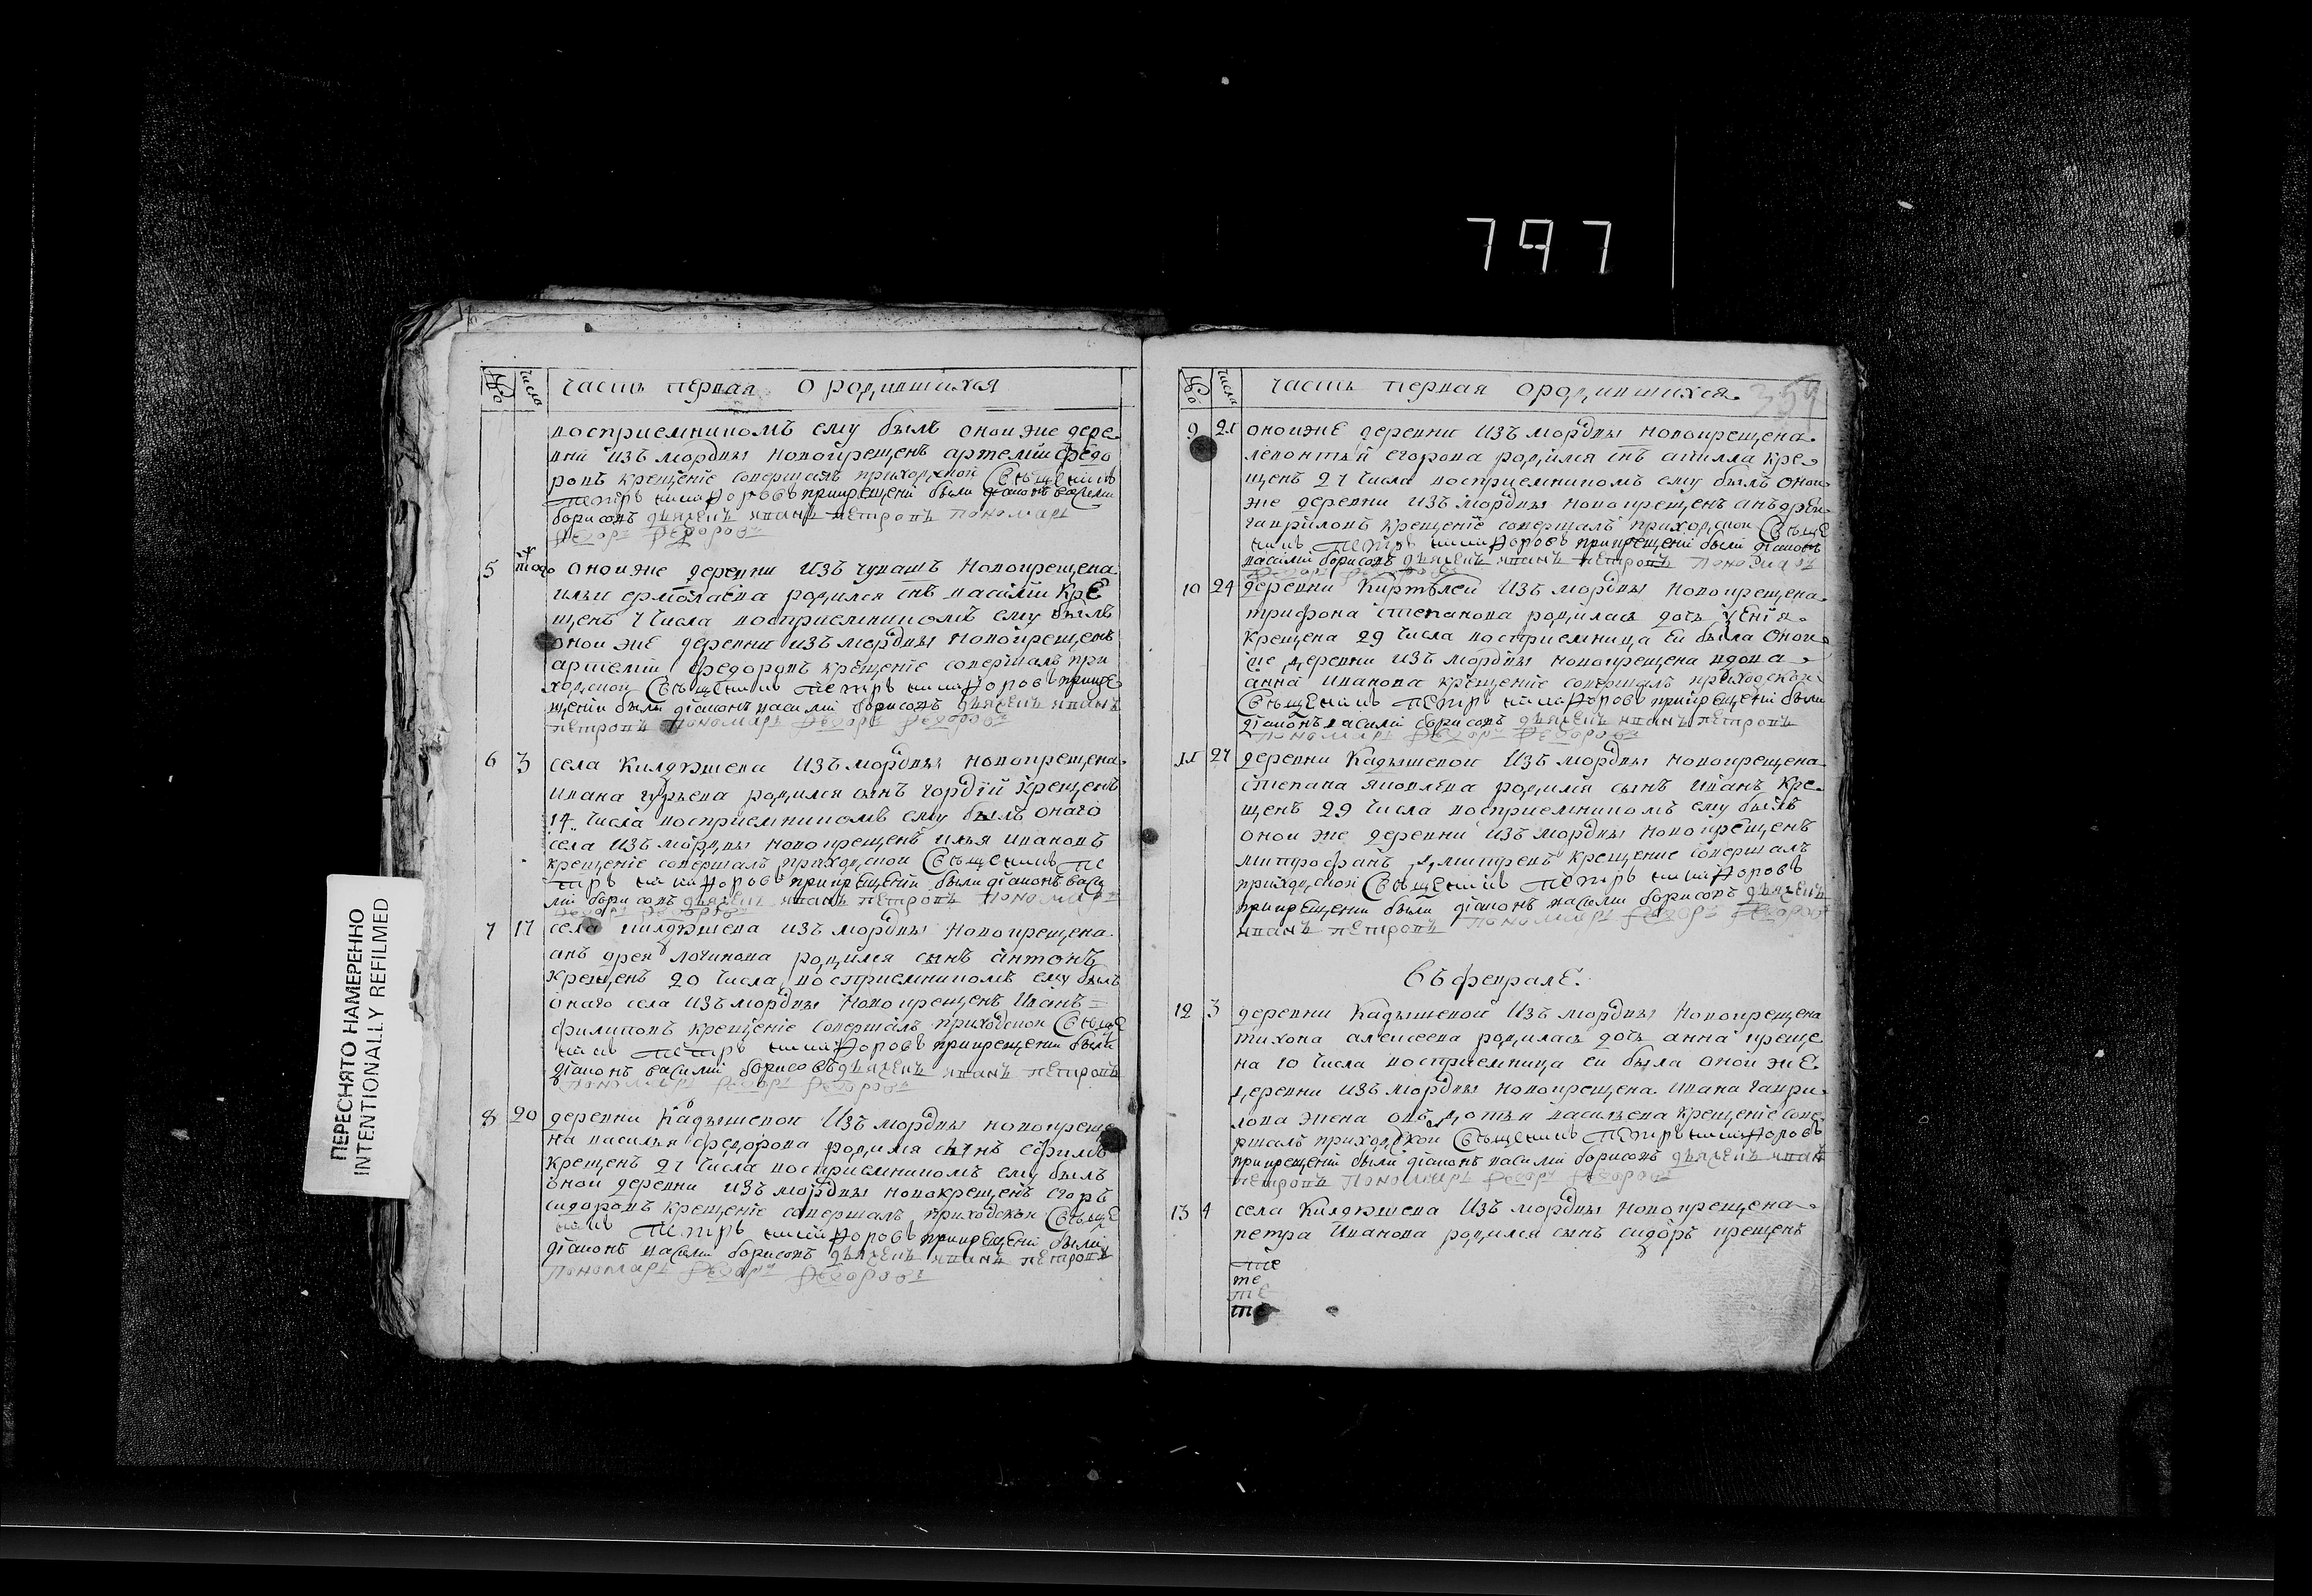 797
ПЕРЕСНЯТО НАМЕРЕННО
INTENTIONALLY REFILMED
№
числа
часть первая о родившихся
восприемникомъ ему былъ оной же дере
вни изъ мордвы новокрещенъ артемий федо
ровъ крещение совершалъ приходской Священникъ
Петръ Никифоровъ при крещении были дiаконъ василий
борисовъ дьячекъ иванъ петровъ пономарь
Федоръ Федоровъ
5 того оной же деревни изъ чувашъ новокрещена
ильи ермолаева родился снъ василий кре
щенъ 7 числа восприемникомъ ему былъ
оной же деревни изъ мордвы новокрещенъ
артемий федоровъ крещение совершалъ при
ходской Священникъ Петръ Никифоровъ при кре
щении были дiаконъ василий борисовъ дьячекъ иванъ
петровъ пономарь Федоръ Федоровъ
6 3 села Килдюшева изъ мордвы новокрещена
ивана гурьева родился сынъ гордiй крещенъ
14 числа восприемникомъ ему былъ онаго
села изъ мордвы новокрещенъ илья ивановъ
крещение совершалъ приходской Священникъ Пе
тръ Никифоровъ при крещении были дiаконъ васи
лий борисовъ дьячекъ иванъ петровъ пономарь
Федоръ Федоровъ
7 17 села килдюшева изъ мордвы новокрещена
анъдрея логинова родился сынъ антонъ
крещенъ 20 числа восприемникомъ ему былъ
онаго села изъ мордвы новокрещенъ иванъ
филиповъ крещение совершалъ приходской Священ
никъ Петръ Никифоровъ при крещении были
дiаконъ василий борисовъ дьячекъ иванъ петровъ
пономарь Федоръ Федоровъ
8 20 деревни Кадышевой изъ мордвы новокреще
на василья федорова родился сынъ ефимъ
крещенъ 27 числа восприемникомъ ему былъ
оной деревни изъ мордвы новокрещенъ егоръ
сидоровъ крещение совершалъ приходской Священ
никъ Петръ Никифоровъ при крещении были
дiаконъ василий борисовъ дьячекъ иванъ петровъ
пономарь Федоръ Федоровъ
№
числа
часть первая о родившихся
9 21 оной же деревни изъ мордвы новокрещена
леонтья егорова родился снъ акилла кре
щенъ 27 числа восприемникомъ ему былъ оной
же деревни изъ мордвы новокрещенъ анъдрей
гавриловъ крещение совершалъ приходской Священ
никъ Петръ Никифоровъ при крещении были дiаконъ
василий борисовъ дьячекъ иванъ петровъ пономарь
Федоръ Федоровъ
10 24 деревни Киртелей изъ мордвы новокрещена
трифона степанова родилась дочь
крещена 29 числа восприемница ей была оной
же деревни изъ мордвы новокрещена вдова
анна иванова крещение совершалъ приходской
Священникъ Петръ Никифоровъ при крещении были
дiаконъ василий борисовъ дьячекъ иванъ петровъ
пономарь Федоръ Федоровъ
11 27 деревни Кадышевой изъ мордвы новокрещена
степана яковлева родился сынъ иванъ кре
щенъ 29 числа восприемникомъ ему былъ
оной же деревни изъ мордвы новокрещенъ
митрофанъ дмитревъ крещение совершалъ
приходской Священникъ Петръ Никифоровъ
при крещении были дiаконъ василий борисовъ дьячекъ
иванъ петровъ пономарь Федоръ Федоровъ
Въ феврале
12 3 деревни Кадышевой изъ мордвы новокрещена
тихона алексеева родилась дочь анна креще
на 10 числа восприемница ей была оной же
деревни изъ мордвы новокрещена ивана гаври
лова жена овъдотья васильева крещение сове
ршалъ приходской Священникъ Петръ Никифоровъ
при крещении были дiаконъ василий борисовъ дьячекъ иванъ
петровъ пономарь Федоръ Федоровъ
13 4 села Килдюшева изъ мордвы новокрещена
петра иванова родился сынъ сидоръ крещенъ
те
те
те
те